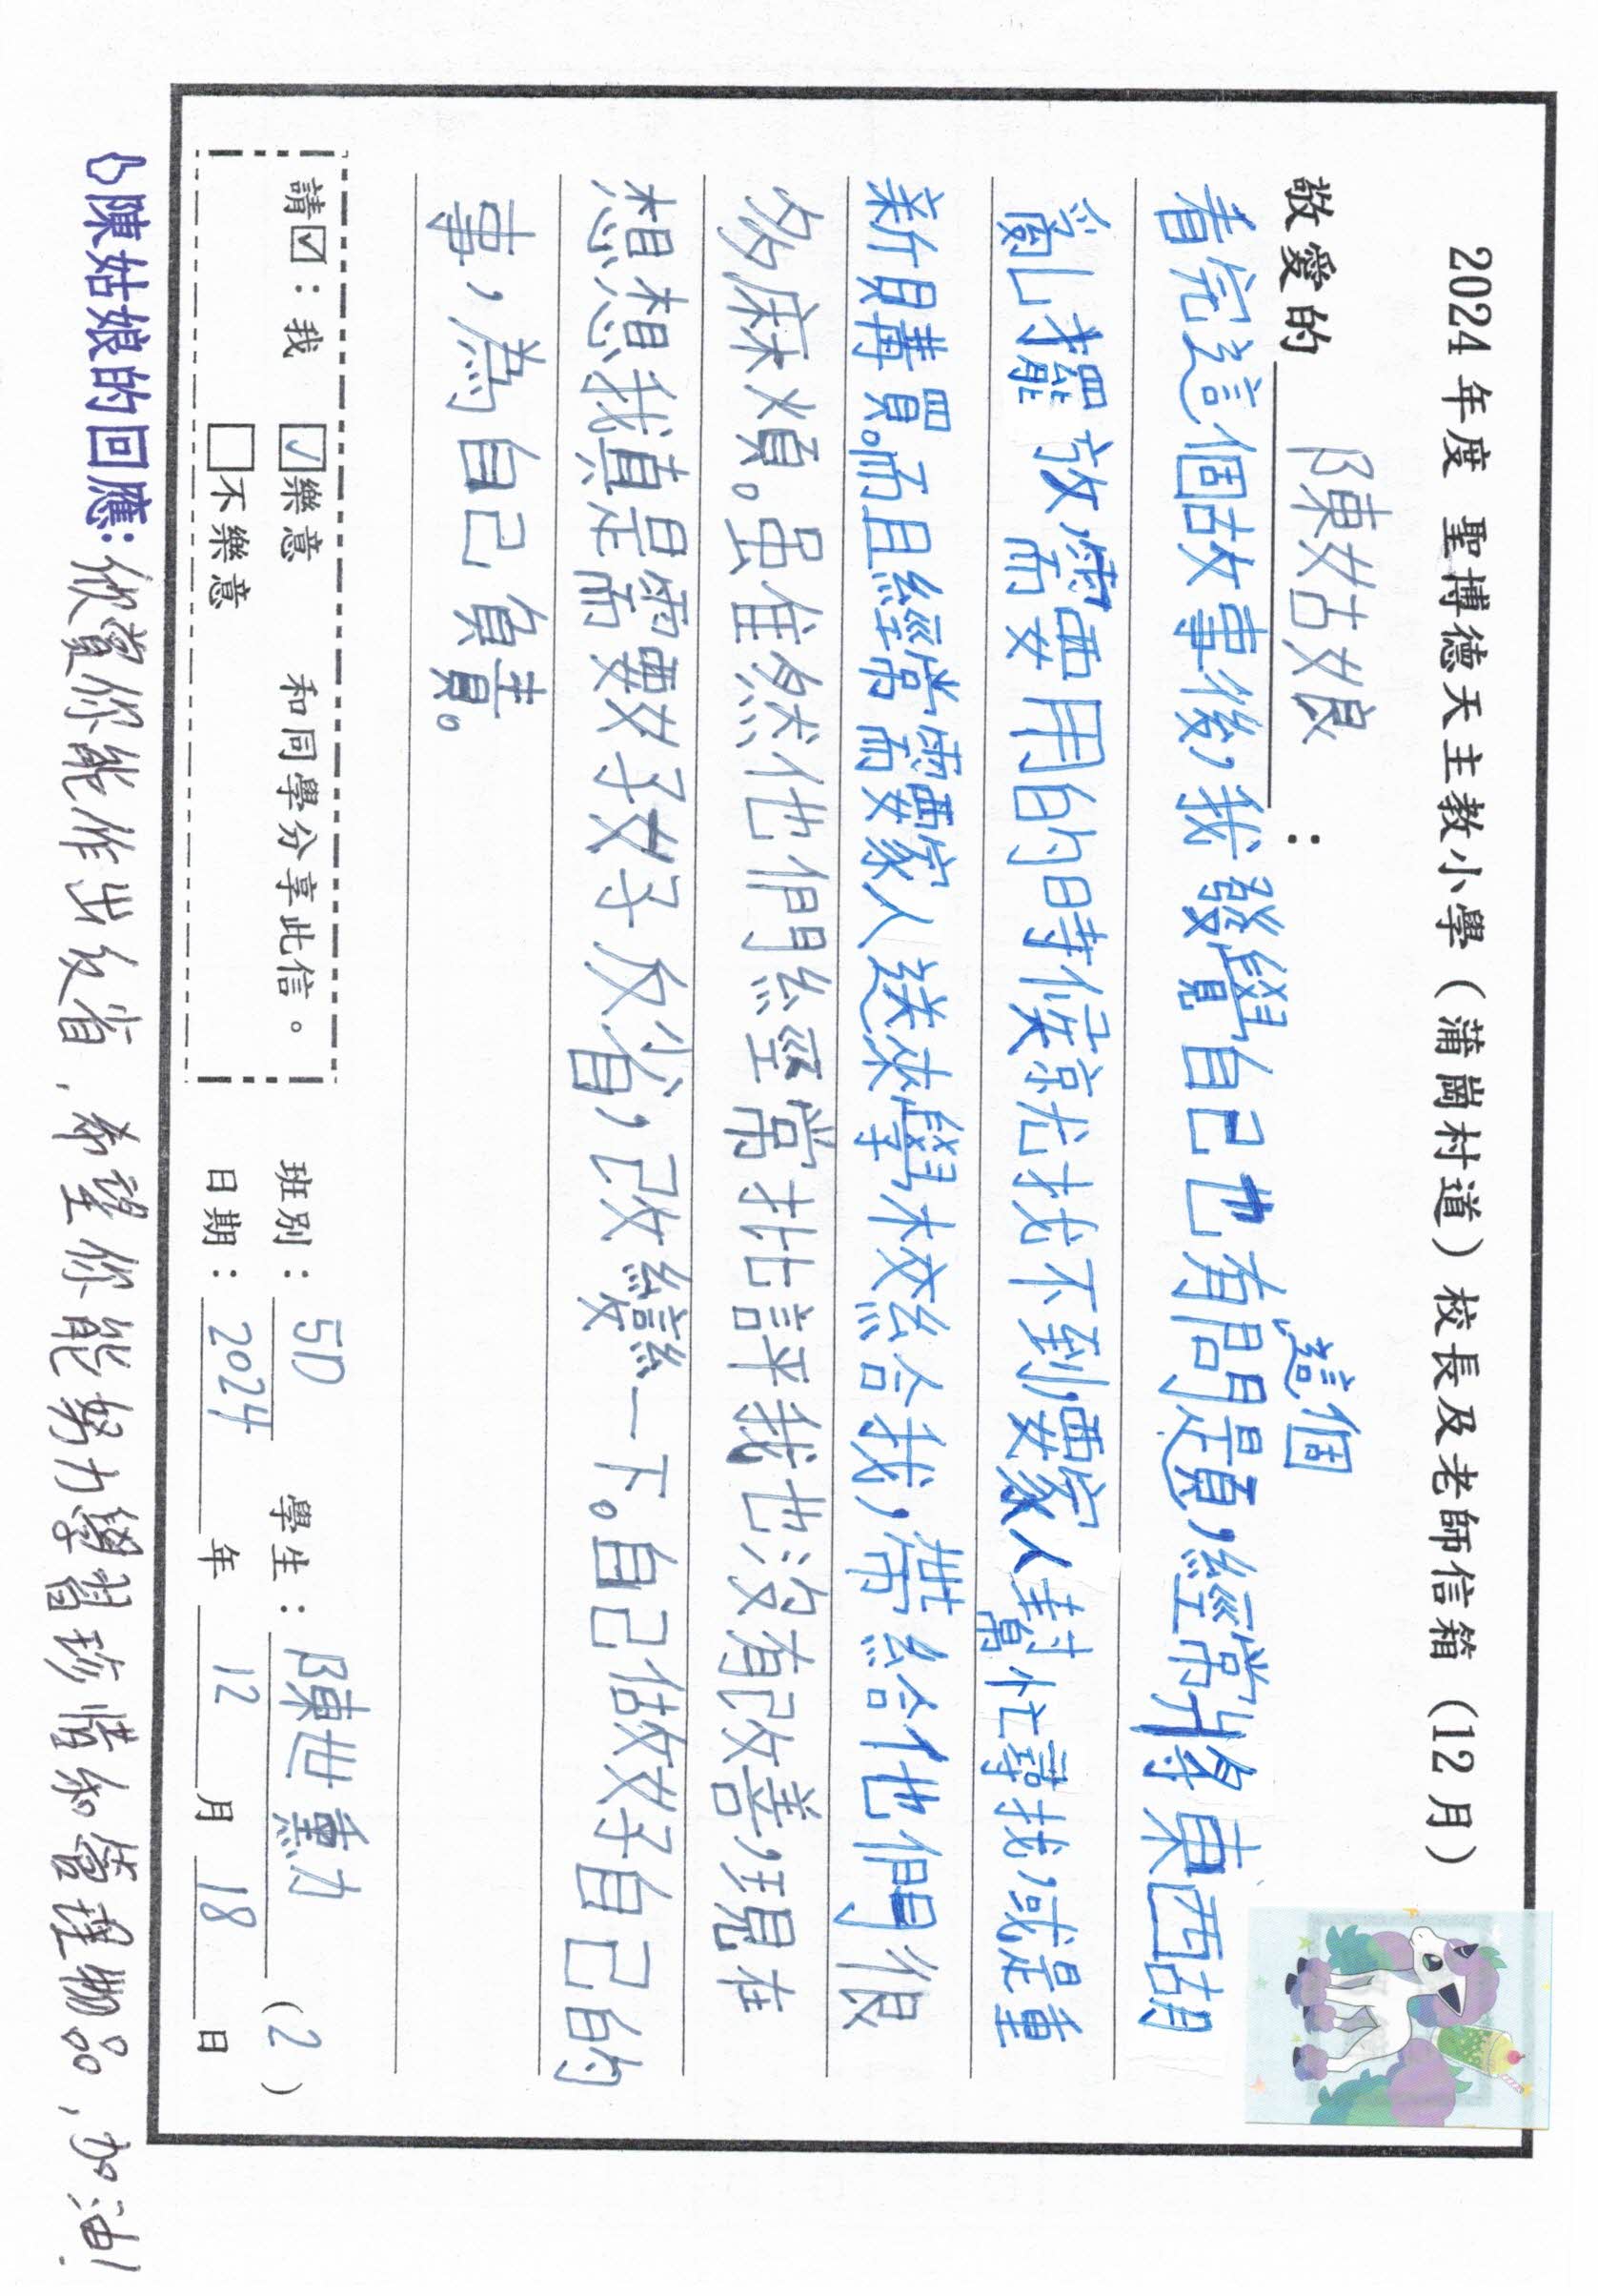 2024年度 聖博德天主教小學（蒲崗村道）校長及老師信箱（12月）
敬愛的 陳姑娘 ：
這個
看完這個故事後，我發覺自己也有問題，經常將東西胡
亂擺放，需要用的時候京尤找不到，要家人幫忙尋找，或是重
新購買。而且經常需要家人送來學校給我，帶給他們很
多麻煩。虽隹然他們經常批評我也沒有改善，現在
想想我真是需要好好反省，改變一下。自己做好自己的
事，為自己負責。
請☑：我 ☑樂意 和同學分享此信。
□不樂意
班別：5D 學生：陳世勳 (2)
日期：2024 年 12 月 18 日
陳姑娘的回應：欣賞你能作出反省，希望你能努力學習珍惜和管理物品，加油！